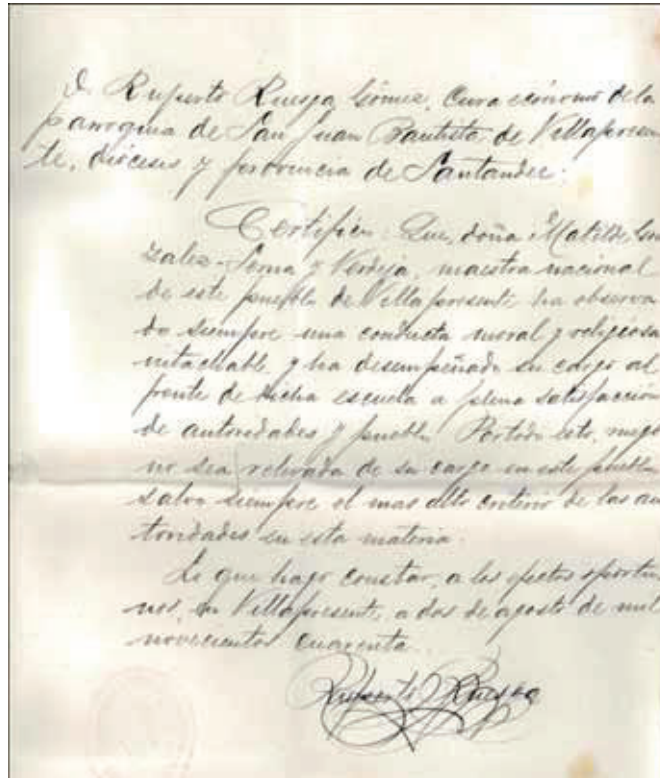 D. Ruperto Ruesga Gómez, Cura ecónomo de la
parroquia de San Juan Bautista de Villapresen-
te, diócesis y provincia de Santander:
Certifico: Que, doña Matilde Gon
zalez-Serna y Verdeja, maestra nacional
de este pueblo de Villapresente ha observa
do siempre una conducta moral y religiosa
intachable, y ha desempeñado su cargo al
frente de dicha escuela a plena satisfacción
de autoridades y pueblo. Por todo esto, ruego
no sea relevada de su cargo en este pueblo
salvo siempre el mas alto criterio de las au
toridades en esta materia.
Lo que hago constar, a los efectos oportu
nos, en Villapresente, a dos de agosto de mil
novecientos cuarenta.
Ruperto Ruesga